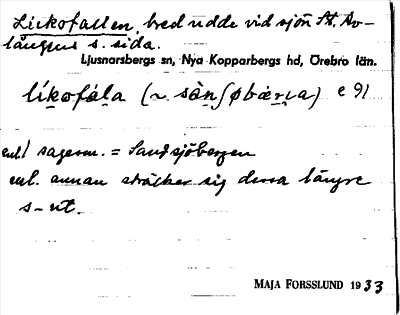 Lickofallen, bred udde vid sjön St. Av-
långens s. sida.
Ljusnarsbergs sn, Nya Kopparbergs hd, Örebro län.
líkofàla (~ sàn∫øbærɩa) e 91
enl sagesm. = Sandsjöbergen
enl. annan sträcker sig dessa längre
s-ut.
MAJA FORSSLUND 1933